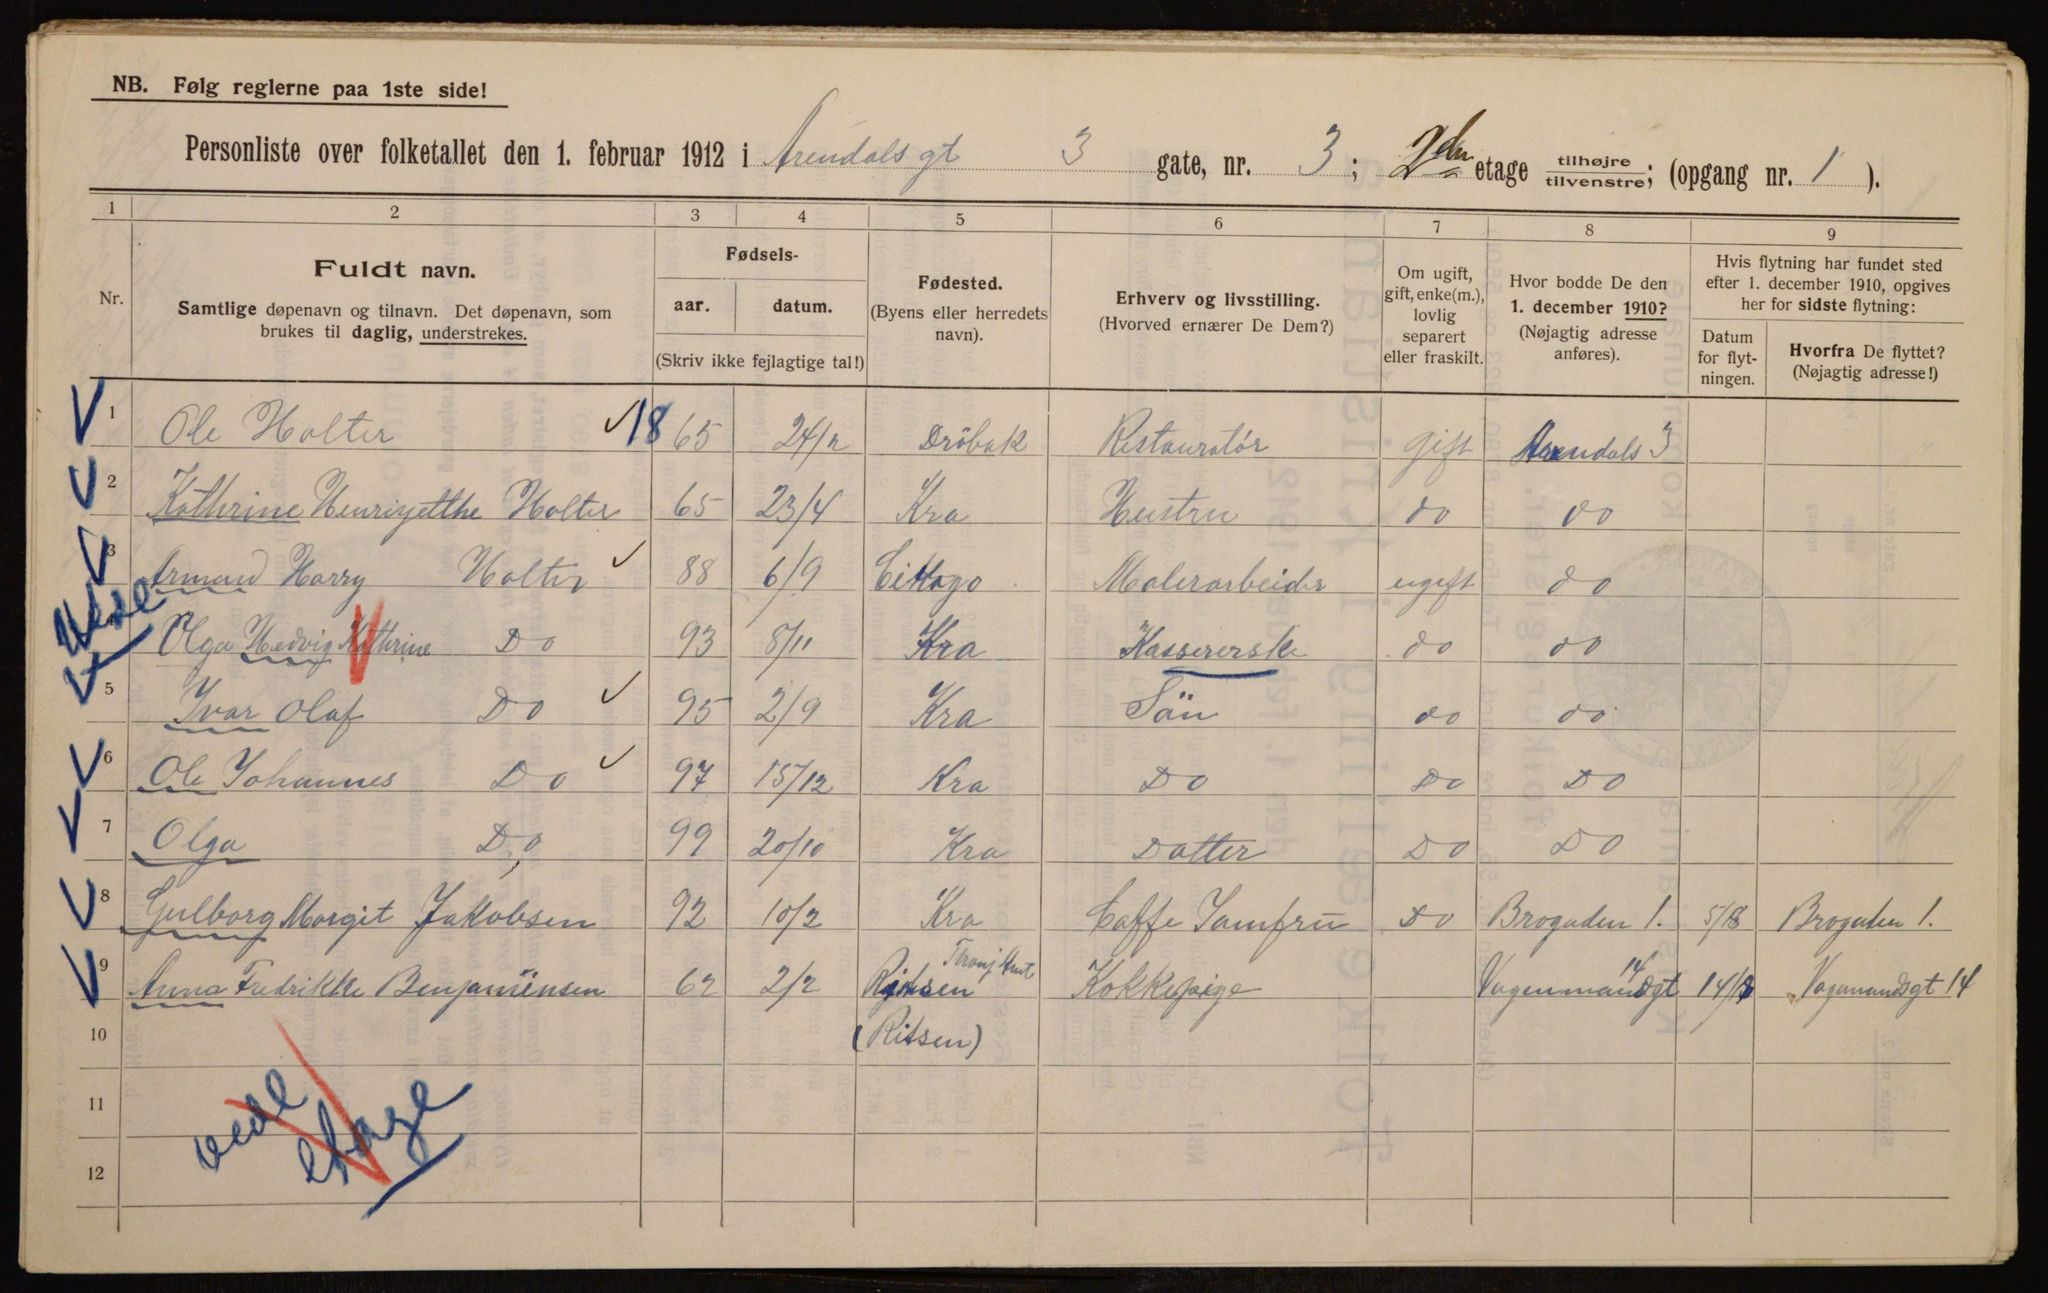 NB. Følg reglerne paa 1ste side!
Personliste over folketallet den 1. februar 1912 i Arendalsgt 3 gate, nr. 3; 2den etage tilhøjre/tilvenstre; (opgang nr. 1 ).
1 2 3 4 5 6 7 8 9
Nr.
Fuldt navn.
Samtlige døpenavn og tilnavn. Det døpenavn, som
brukes til daglig, understrekes.
Fødsels-
aar. datum.
(Skriv ikke fejlagtige tal!)
Fødested.
(Byens eller herredets
navn).
Erhverv og livsstilling.
(Hvorved ernærer De Dem?)
Om ugift,
gift, enke(m.),
lovlig
separert
eller fraskilt.
Hvor bodde De den
1. december 1910?
(Nøjagtig adresse
anføres).
Hvis flytning har fundet sted
efter 1. december 1910, opgives
her for sidste flytning:
Datum
for flyt-
ningen.
Hvorfra De flyttet?
(Nøjagtig adresse!)
1 Ole Holter 18 65 24/2 Dröbak Restauratör gift Arendals 3
2 Kathrine Henriyetthe Holter 65 23/4 Kra Hustru do do
3 Arman Harry Holter 88 6/9 Malerarbeider ugift do
4 Olga Hedvig Kathrine Do 93 8/11 Kra Kassererske do do
5 Ivar Olaf Do 95 2/9 Kra Sön do do
6 Ole Johannes Do 97 15/12 Kra Do Do Do
7 Olga Do 99 20/10 Kra Datter Do Do
8 Gulborg Margit Jakobsen 92 10/2 Kra Caffe Jamfru Do Brogaden 1. 5/18 Brogaden 1.
9 Anna Fredrikke Benjaminsen 62 2/2 Kokkepige 14
10 (Ritsen)
11
12
etage